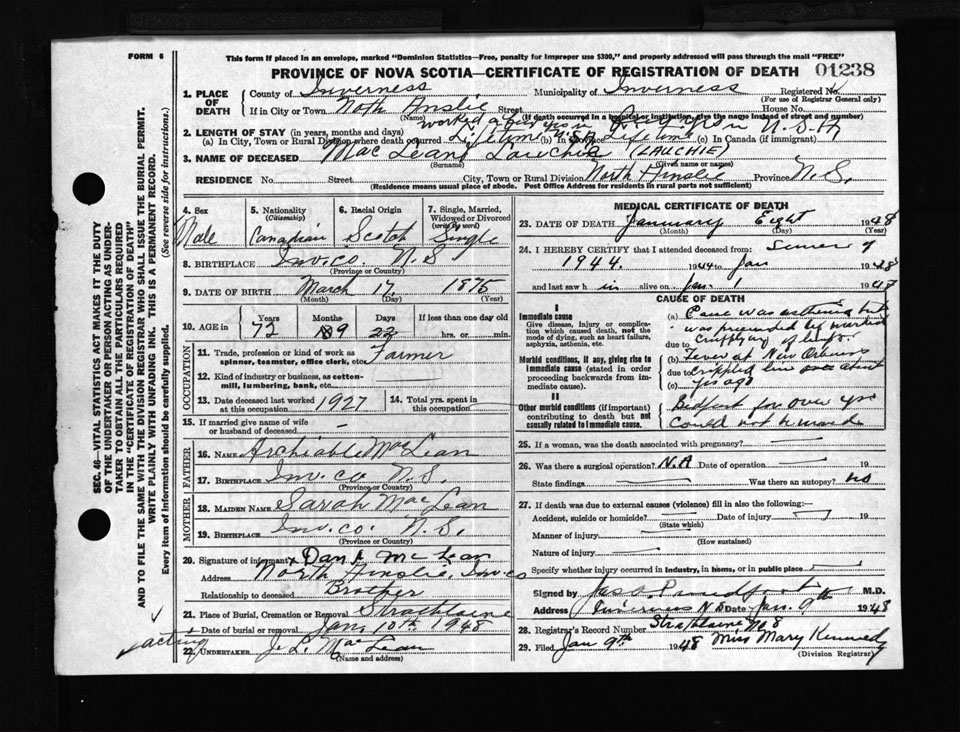 FORM 6
This form if placed in an envelope, marked "Dominion Statistics—Free, penalty for improper use $300," and properly addressed will pass through the mail "FREE"
PROVINCE OF NOVA SCOTIA—CERTIFICATE OF REGISTRATION OF DEATH 01238
1. PLACE OF DEATH County of Inverness Municipality of Inverness Registered No.
(For use of Registrar General only)
If in City or Town Noth Ainslie Street House No.
(Name) (If death occurred in a hospital or institution, give the name instead of street and number)
worked a few yrs in U.S.A
2. LENGTH OF STAY (in years, months and days)
(a) In City, Town or Rural Division where death occurred Lifetime (b) In Province Lifetime (c) In Canada (if immigrant)
3. NAME OF DECEASED MacLean Lauchie (LAUCHIE)
(Surname) (Given name or names)
RESIDENCE No. Street City, Town or Rural Division North Ainslie Province N.S.
(Residence means usual place of abode. Post Office Address for residents in rural parts not sufficient)
4. Sex Male
5. Nationality (Citizenship) Canadian
6. Racial Origin Scotch
7. Single, Married, Widowed or Divorced (write the word) Single
8. BIRTHPLACE Inv. co. N.S
(Province or Country)
9. DATE OF BIRTH March 17, 1875
(Month) (Day) (Year)
10. AGE in Years Months Days If less than one day
72 9 22 hrs. or min.
OCCUPATION
11. Trade, profession or kind of work as spinner, teamster, office clerk, etc. Farmer
12. Kind of industry or business, as cotton-mill, lumbering, bank, etc.
13. Date deceased last worked at this occupation 1927
14. Total yrs. spent in this occupation
15. If married give name of wife or husband of deceased —
FATHER
16. NAME Archibald MacLean
17. BIRTHPLACE Inv. co N.S.
(Province or Country)
MOTHER
18. MAIDEN NAME Sarah MacLean
19. BIRTHPLACE Inv. co. N.S.
(Province or Country)
20. Signature of informant x Dan McLean
Address North Ainslie, Inv co
Relationship to deceased Brother
21. Place of Burial, Cremation or Removal Strathlaine
Date of burial or removal Jan. 10th 1948
acting
22. UNDERTAKER J. L. MacLean
(Name and address)
MEDICAL CERTIFICATE OF DEATH
23. DATE OF DEATH January Eight 1948
(Month) (Day)
24. I HEREBY CERTIFY that I attended deceased from Summer of
1944. 1944 to Jan 1948
and last saw him alive on Jan. 1 194
CAUSE OF DEATH
I
Immediate cause
Give disease, injury or complication which caused death, not the mode of dying, such as heart failure, asphyxia, asthenia, etc.
Morbid conditions, if any, giving rise to immediate cause (stated in order proceeding backwards from immediate cause).
II
Other morbid conditions (if important) contributing to death but not causally related to immediate cause.
(a) Cause was asthenia but
was preceeded by marked
due to crippling of limbs.
(b) Fever at New Orleans
due to crippled him about
(c) yrs ago
Bedfast for over yr
Could not be made
25. If a woman, was the death associated with pregnancy? —
26. Was there a surgical operation? N.A Date of operation 19
State findings Was there an autopsy? no
27. If death was due to external causes (violence) fill in also the following:—
Accident, suicide or homicide? Date of injury 19
(State which)
Manner of injury
(How sustained)
Nature of injury
Specify whether injury occurred in industry, in home, or in public place
Signed by Jas. M.D.
Address Inverness N.S Date Jan. 9th 1948
28. Registrar's Record Number Strathlaine No 8
29. Filed Jan 9th 1948 Miss Mary Kennedy
(Division Registrar)
SEC. 46—VITAL STATISTICS ACT MAKES IT THE DUTY OF THE UNDERTAKER OR PERSON ACTING AS UNDERTAKER TO OBTAIN ALL THE PARTICULARS REQUIRED IN THE "CERTIFICATE OF REGISTRATION OF DEATH" AND TO FILE THE SAME WITH THE DIVISION REGISTRAR WHO SHALL ISSUE THE BURIAL PERMIT.
WRITE PLAINLY WITH UNFADING INK. THIS IS A PERMANENT RECORD.
Every item of information should be carefully supplied. (See reverse side for instructions.)